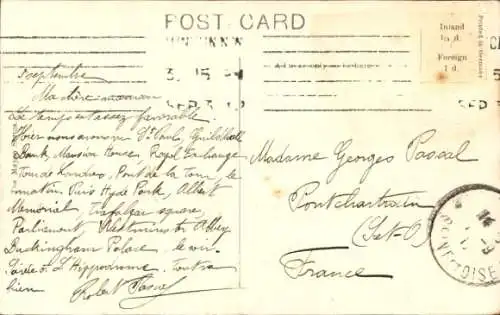 POST CARD
Inland
½d.
Foreign
1d.
Printed in Germany
3.15
SEP 3
3 septembre
Ma chère maman
Le temps est assez favorable.
Hier nous avons vu St Paul's, Guildhall
Bank, Mansion House, Royal Exchange
Tour de Londres, Pont de la Tour, le
Puis Hyde Park, Albert
Memorial, Trafalgar square,
Parliement, Westminster Abbey
Buckingham Palace. le soir
Soirée à l'Hippodrome. Tout va
bien
Robert Pascal
Madame Georges Pascal
Pontchartrain
(Set-O)
France
OISE